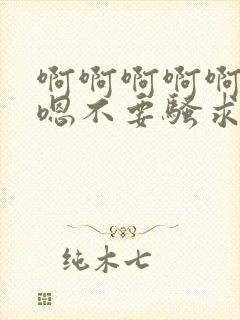 啊啊啊啊啊
嗯不要骚求
纯木七